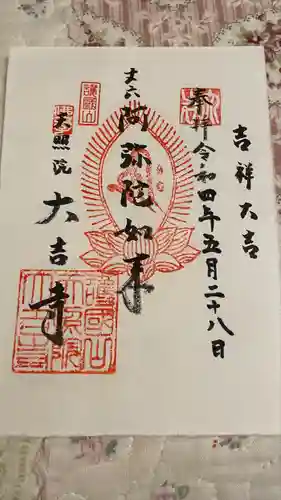 吉祥大吉
奉拝 令和四年五月二十八日
丈六
阿弥陀如来
天照院 大吉寺
護國山